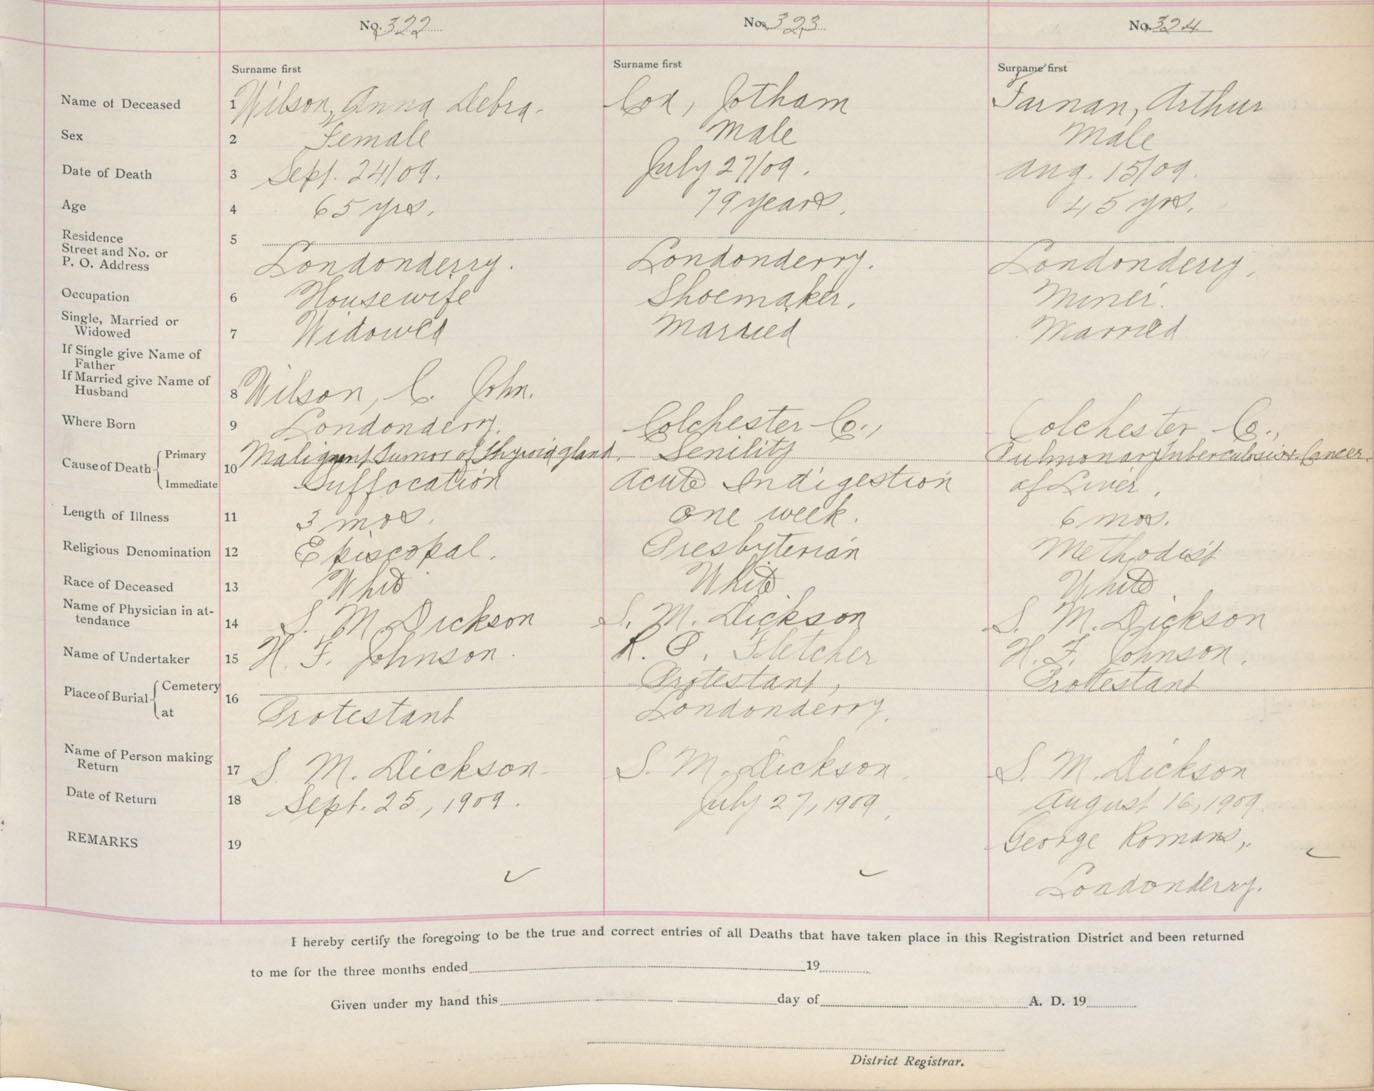 No. 322 No. 323 No. 324
Surname first Surname first Surname first
Name of Deceased 1 Wilson, Anna Debra. Cox, Jotham Farnan, Arthur
Sex 2 Female Male Male
Date of Death 3 Sept. 24/09. July 27/09. Aug. 15/09.
Age 4 65 yrs. 79 years. 45 yrs.
Residence 5
Street and No. or
P. O. Address Londonderry. Londonderry. Londonderry.
Occupation 6 Housewife Shoemaker. Miner.
Single, Married or
Widowed 7 Widowed Married Married
If Single give Name of
Father
If Married give Name of
Husband 8 Wilson, C. John.
Where Born 9 Londondery. Colchester Co., Colchester Co.,
Cause of Death Primary 10 Malignant Tumor of Thyroid gland. Senility Pulmonary Tuberculosis & Cancer
Immediate Suffocation Acute Indigestion of Liver.
Length of Illness 11 3 mos. One week. 6 mos.
Religious Denomination 12 Episcopal. Presbyterian Methodist
Race of Deceased 13 White White White
Name of Physician in at-
tendance 14 S. M. Dickson S. M. Dickson S. M. Dickson
Name of Undertaker 15 H. F. Johnson. R. P. Fletcher H. F. Johnson.
Place of Burial Cemetery 16 Protestant, Protestant
at Protestant Londonderry.
Name of Person making
Return 17 S. M. Dickson S. M. Dickson S. M. Dickson
Date of Return 18 Sept. 25, 1909. July 27, 1909. August 16, 1909
REMARKS 19 George Romans,
Londonderry.
I hereby certify the foregoing to be the true and correct entries of all Deaths that have taken place in this Registration District and been returned
to me for the three months ended 19
Given under my hand this day of A. D. 19
District Registrar.